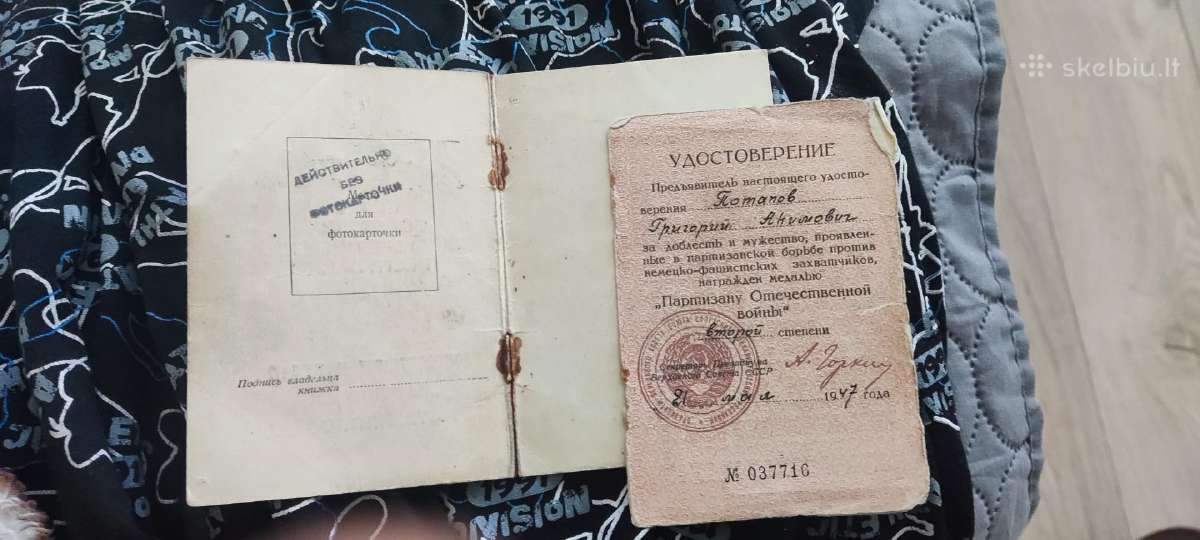 ДЕЙСТВИТЕЛЬНО
БЕЗ
ФОТОКАРТОЧКИ
для
фотокарточки
Подпись владельца
книжки
УДОСТОВЕРЕНИЕ
Предъявитель настоящего удосто-
верения Потапов
Григорий Акимович
за доблесть и мужество, проявлен-
ные в партизанской борьбе против
немецко-фашистских захватчиков,
награжден медалью
„Партизану Отечественной
войны“
второй степени
Секретарь Президиума
Верховного Совета СССР
А. Горкин
21 мая 1947 года
№ 037716
skelbiu.lt
1991
VISION
1991
VISION